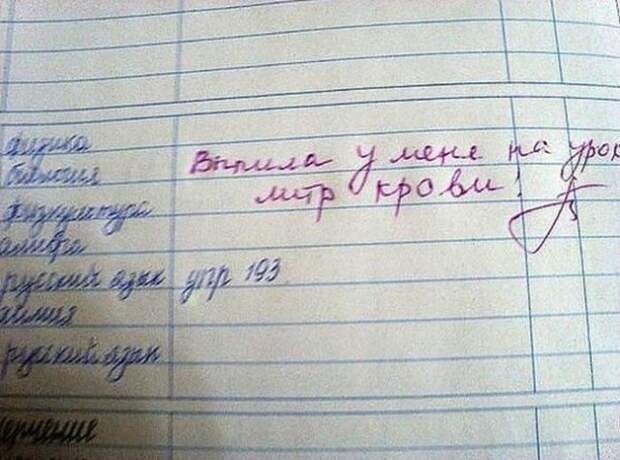 физика
биология
Выпила у меня на урок
физкультура
литр крови!
алгебра
русский язык упр 193
химия
русский язык
черчение